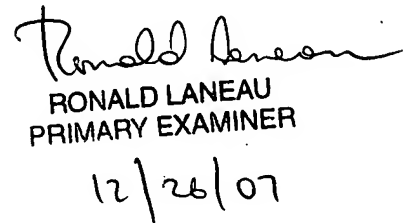 Ronald Laneau
RONALD LANEAU
PRIMARY EXAMINER
12/26/07